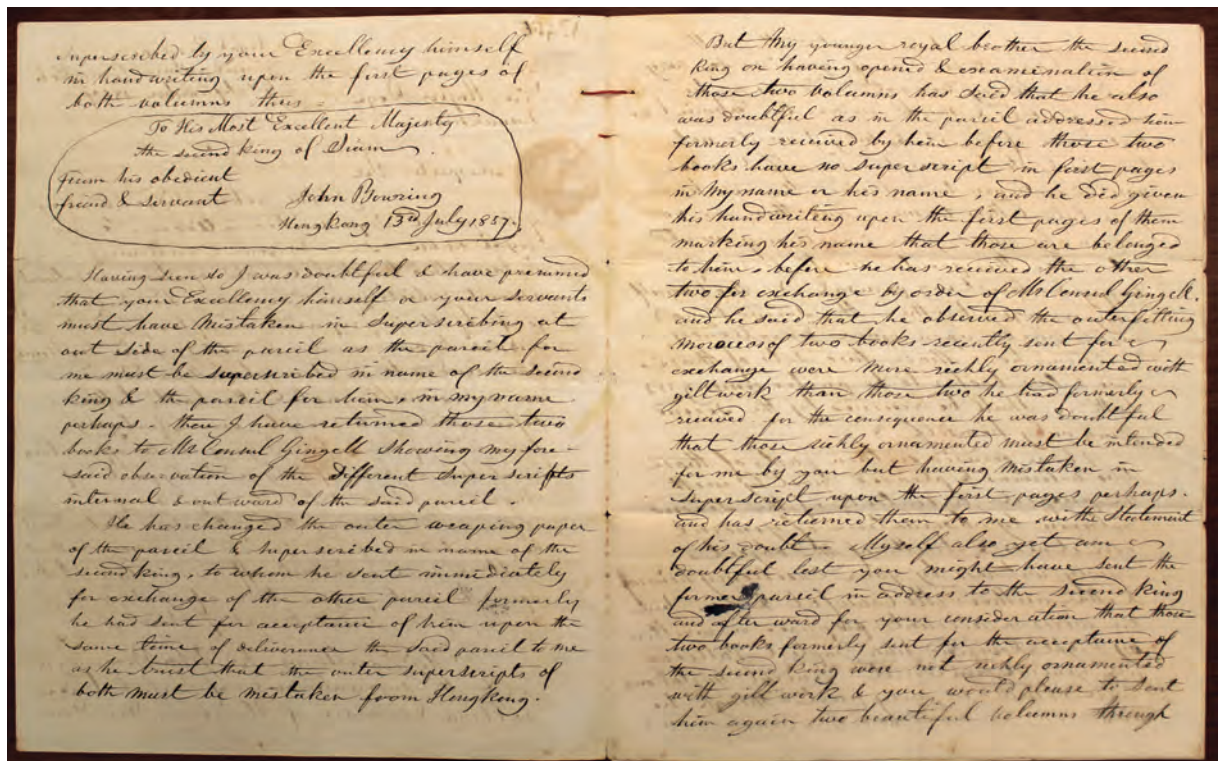 superscribed by your Excellency himself
in handwriting upon the first pages of
both volumns thus -
To His Most Excellent Majesty
the second king of Siam
from his obedient
freind & servant
John Bowring
Hongkong 13th July 1857.
Having seen so I was doubtful & have presumed
that your Excellency himself or your servants
must have mistaken in superscribing at
out side of the parcil as the parcil for
me must be superscribed in name of the second
king & the parcil for him, in my name
perhaps. then I have returned those two
books to Mr Consul Gingell showing my fore-
said observation of the Different superscripts
internal & out ward of the said parcil.
He has changed the outer weaping paper
of the parcil & superscribed in name of the
second king, to whom he sent immediately
for exchange of the other parcil formerly
he had sent for acceptance of him upon the
same time of deliverance the said parcil to me
as he trust that the outer superscripts of
both must be mistaken from Hongkong.
But My younger royal brother the second
King on having opened & examination of
those two volumns has said that he also
was doubtful as in the parcil addressed him
formerly received by him before those two
books have no superscript in first pages
in My name or his name, and he did given
his handwriting upon the first pages of them
marking his name that those are belonged
to him, before he has received the other
two for exchange by order of Mr Consul Gingell.
and he said that he observed the outerfitting
morocos of two books recently sent for
exchange were more richly ornamented with
giltwork than those two he had formerly
received for the consequence he was doubtful
that those richly ornamented must be intended
for me by you but having mistaken in
superscript upon the first pages perhaps.
and has returned them to me with Statement
of his doubt. Myself also yet am
doubtful lest you might have sent the
former parcil in address to the second king
and after ward for your consideration that those
two books formerly sent for the acceptance of
the second King were not richly ornamented
with gilt work & you would please to sent
him again two beautiful volumns through